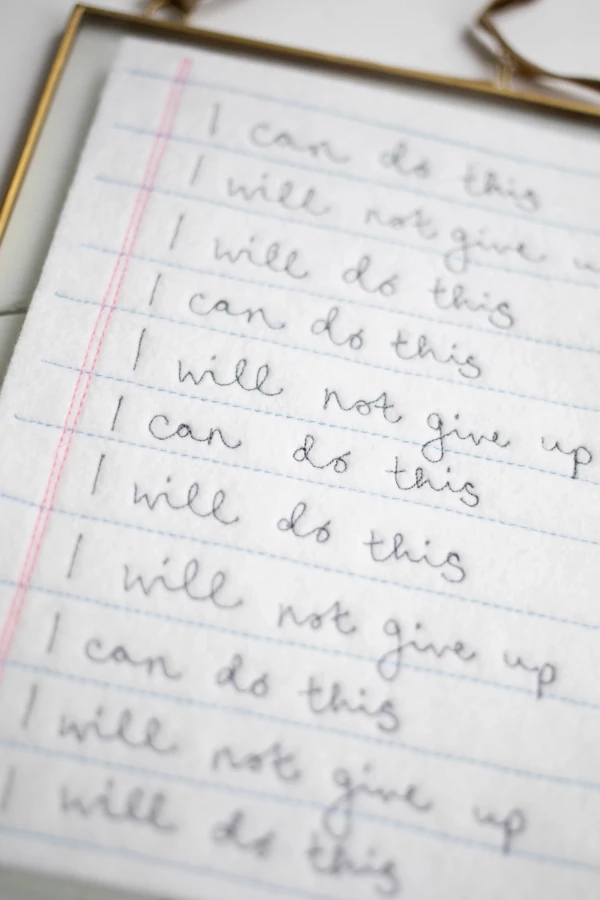 I can do this
I will not give
I will do this
I can do this
I will not give up
I can do this
I will do this
I will not give up
I can do this
I will not give up
I will do this